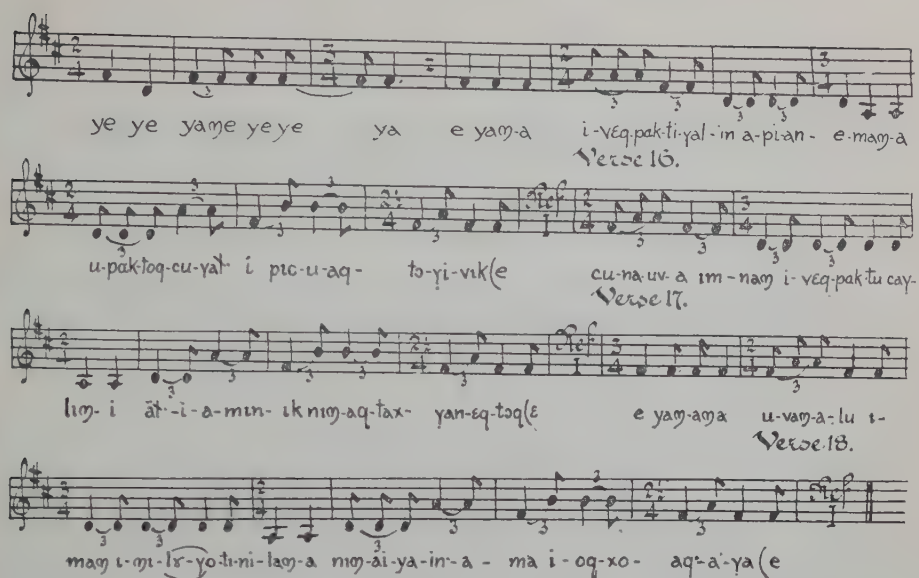 ye ye yame yeye ya e yaṃ-a i-vɛq-pak-ti-yal-in a-pi-an- e-maṃ-a
Verse 16.
u-pak-toq-cu-yat i pıc-u-aq- tɔ-yi-vık(e cu-na-uv-a ım-naṃ i-vɛq-pak-tu cay-
Verse 17.
lıṃ-i ät-i-a-mın-ık nıṃ-aq-tax- yan-ɛq-tɔq(ɛ e yaṃ-ama u-vaṃ-a-lu ı-
Verse 18.
maṃ ı-mı-lɤ-yo-tı-ni-laṃ-a nıṃ-ai-ya-in-a-ma i-oq-xo- aq-a-ya(e